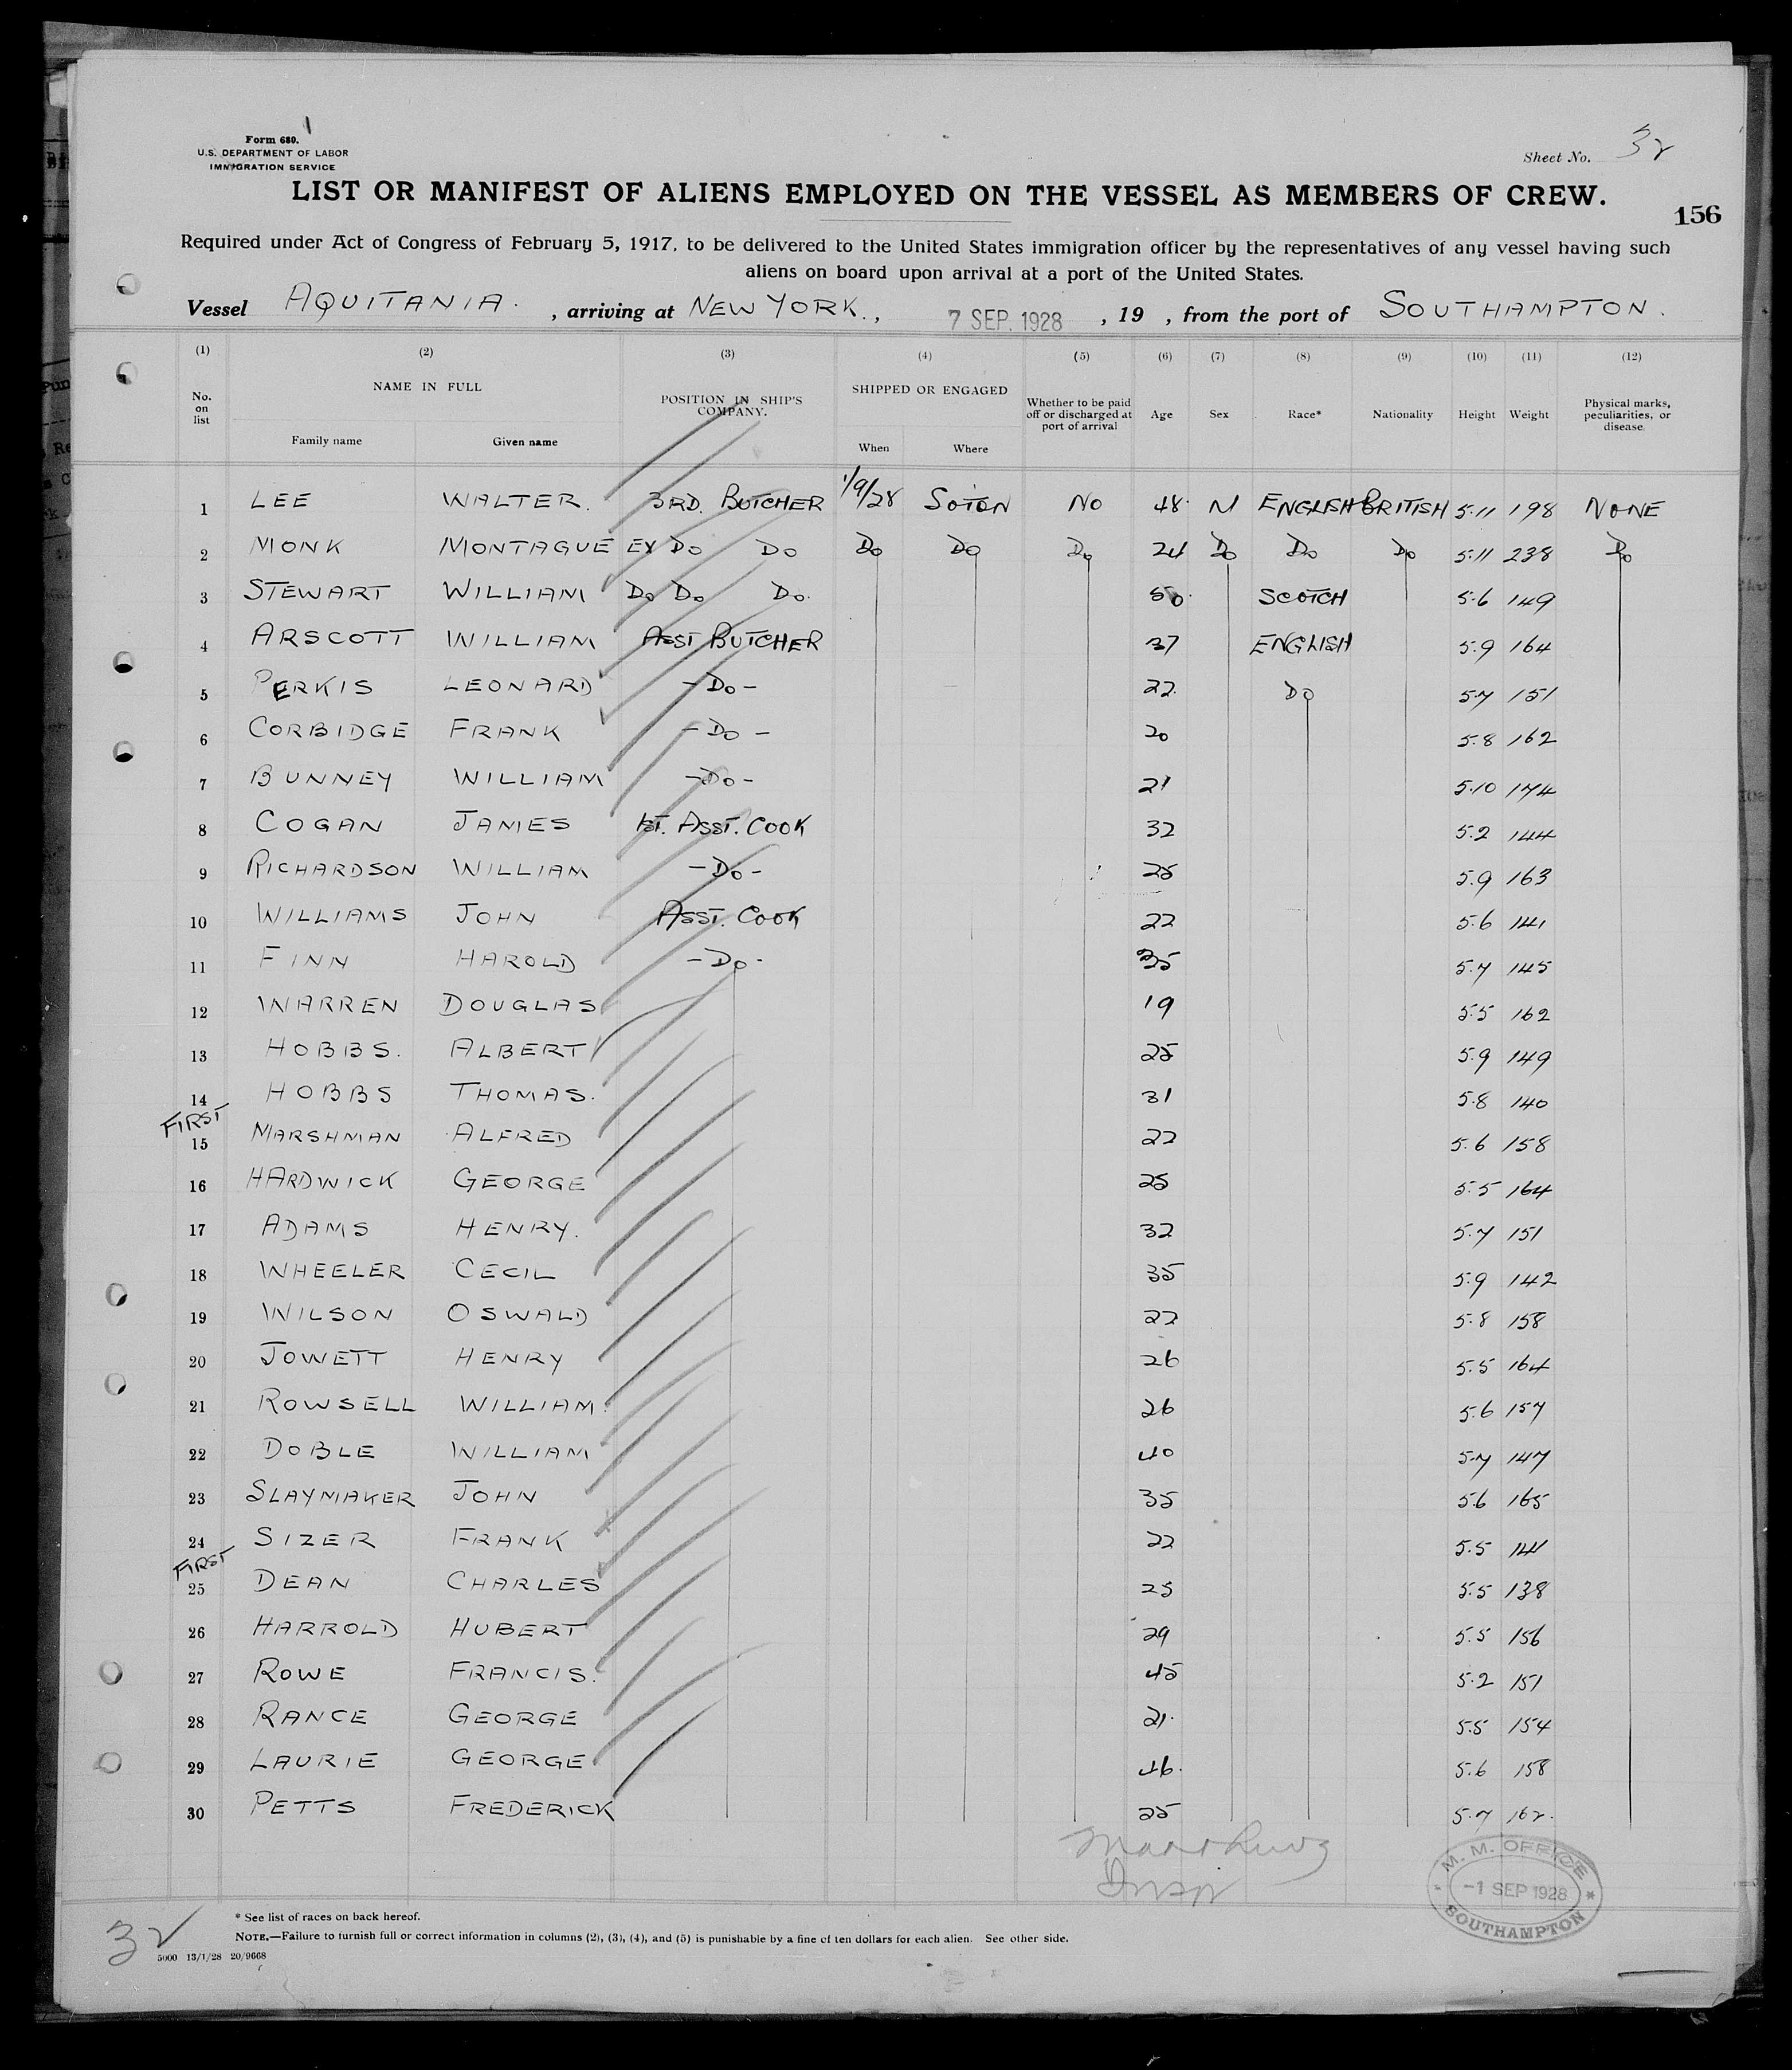 Form 680.
U.S. DEPARTMENT OF LABOR
IMMIGRATION SERVICE
Sheet No. 32
LIST OR MANIFEST OF ALIENS EMPLOYED ON THE VESSEL AS MEMBERS OF CREW.
156
Required under Act of Congress of February 5, 1917, to be delivered to the United States immigration officer by the representatives of any vessel having such
aliens on board upon arrival at a port of the United States.
Vessel AQUITANIA. , arriving at NEW YORK., 7 SEP. 1928 , 19 , from the port of SOUTHAMPTON.
(1) (2) (3) (4) (5) (6) (7) (8) (9) (10) (11) (12)
No. on list NAME IN FULL Family name Given name POSITION IN SHIP'S COMPANY. SHIPPED OR ENGAGED When Where Whether to be paid off or discharged at port of arrival Age Sex Race* Nationality Height Weight Physical marks, peculiarities, or disease
1 LEE WALTER. 3RD. BUTCHER 1/9/28 SOTON NO 48 M ENGLISH BRITISH 5.11 198 NONE
2 MONK MONTAGUE EX DO DO DO DO DO 24 DO DO DO 5.11 238 DO
3 STEWART WILLIAM DO DO DO. 50 SCOTCH 5.6 149
4 ARSCOTT WILLIAM ASST BUTCHER 37 ENGLISH 5.9 164
5 PERKIS LEONARD -DO- 22 DO 5.7 151
6 CORBIDGE FRANK -DO- 20 5.8 162
7 BUNNEY WILLIAM -DO- 21 5.10 174
8 COGAN JAMES 1ST. ASST. COOK 32 5.2 144
9 RICHARDSON WILLIAM -DO- 25 5.9 163
10 WILLIAMS JOHN ASST. COOK 22 5.6 141
11 FINN HAROLD -DO- 35 5.7 145
12 WARREN DOUGLAS 19 5.5 162
13 HOBBS. ALBERT 25 5.9 149
14 HOBBS THOMAS. 31 5.8 140
FIRST
15 MARSHMAN ALFRED 22 5.6 158
16 HARDWICK GEORGE 25 5.5 164
17 ADAMS HENRY. 32 5.7 151
18 WHEELER CECIL 35 5.9 142
19 WILSON OSWALD 22 5.8 158
20 JOWETT HENRY 26 5.5 164
21 ROWSELL WILLIAM. 26 5.6 157
22 DOBLE WILLIAM 40 5.7 147
23 SLAYMAKER JOHN 35 5.6 165
24 SIZER FRANK 22 5.5 141
FIRST
25 DEAN CHARLES 25 5.5 138
26 HARROLD HUBERT 29 5.5 156
27 ROWE FRANCIS. 45 5.2 151
28 RANCE GEORGE 21. 5.5 154
29 LAURIE GEORGE 46. 5.6 158
30 PETTS FREDERICK 25 5.7 162.
M. M. OFFICE
-1 SEP 1928
SOUTHAMPTON
* See list of races on back hereof.
NOTE.—Failure to furnish full or correct information in columns (2), (3), (4), and (5) is punishable by a fine of ten dollars for each alien. See other side.
32
5000 13/1/28 20/9668